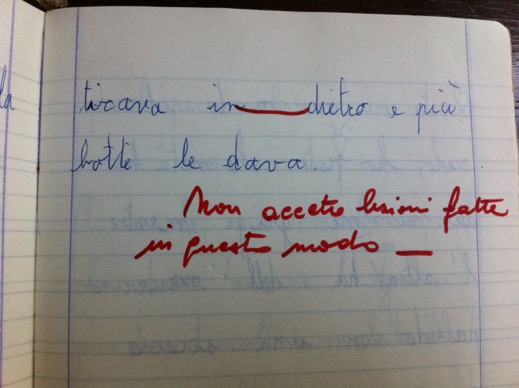 la
tirava in dietro e più
botte le dava.
Non accetto lezioni fatte
in questo modo —